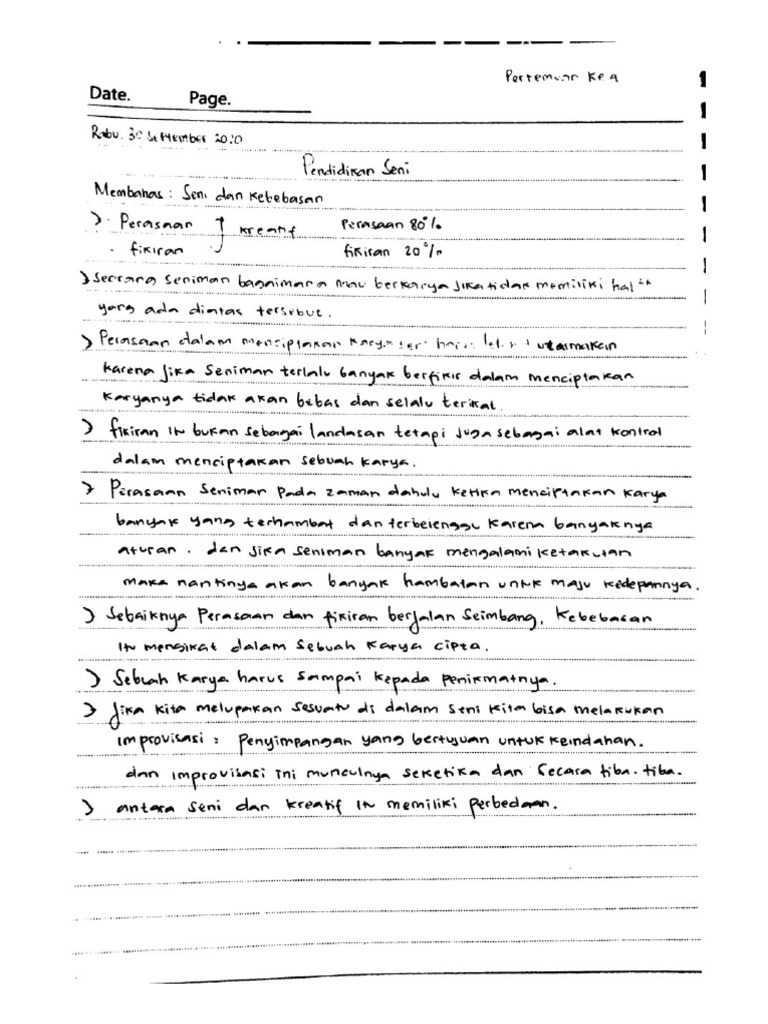 Pertemuan Ke 4
Date. Page.
Rabu. 30 September 2020
Pendidikan Seni
Membahas : Seni dan Kebebasan
> · Perasaan ] kreatif Perasaan 80%
· fikiran fikiran 20%
> Seorang Seniman bagaimana mau berkarya jika tidak memiliki hal"
yang ada diatas tersebut.
> Perasaan dalam menciptakan utamakan
karena jika Seniman terlalu banyak berfikir dalam menciptakan
karyanya tidak akan bebas dan selalu terikat.
> fikiran itu bukan sebagai landasan tetapi juga sebagai alat kontrol
dalam menciptakan sebuah karya.
> Perasaan Seniman pada zaman dahulu ketika menciptakan karya
banyak yang terhambat dan terbelenggu karena banyaknya
aturan. dan jika seniman banyak mengalami ketakutan
maka nantinya akan banyak hambatan untuk maju kedepannya.
> Sebaiknya Perasaan dan fikiran berjalan Seimbang, Kebebasan
itu mengikat dalam Sebuah Karya cipta.
> Sebuah Karya harus Sampai kepada penikmatnya.
> Jika Kita melupakan Sesuatu di dalam seni kita bisa melakukan
improvisasi : Penyimpangan yang bertujuan untuk keindahan.
dan improvisasi ini munculnya seketika dan Secara tiba-tiba.
> antara Seni dan kreatif itu memiliki perbedaan.